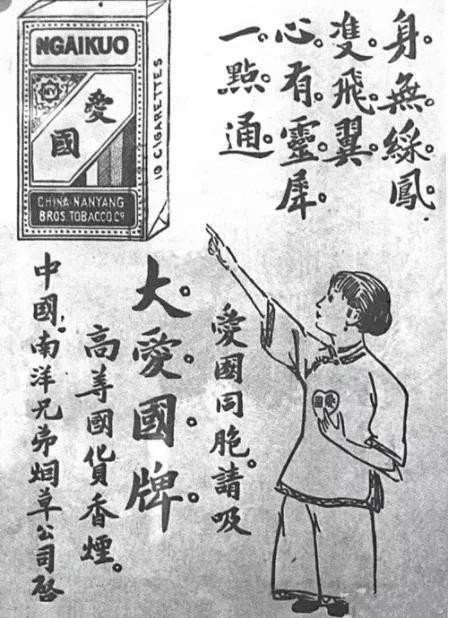 身。無。綵。鳳。
雙。飛。翼。
心。有。靈。犀。
一。點。通。
NGAIKUO
10 CIGARETTES
愛
國
CHINA NANYANG
BROS TOBACCO Cº
愛國同胞。請吸
大。愛。國。牌。
高等國貨香煙。
中國。南洋兄弟烟草公司啓
愛國